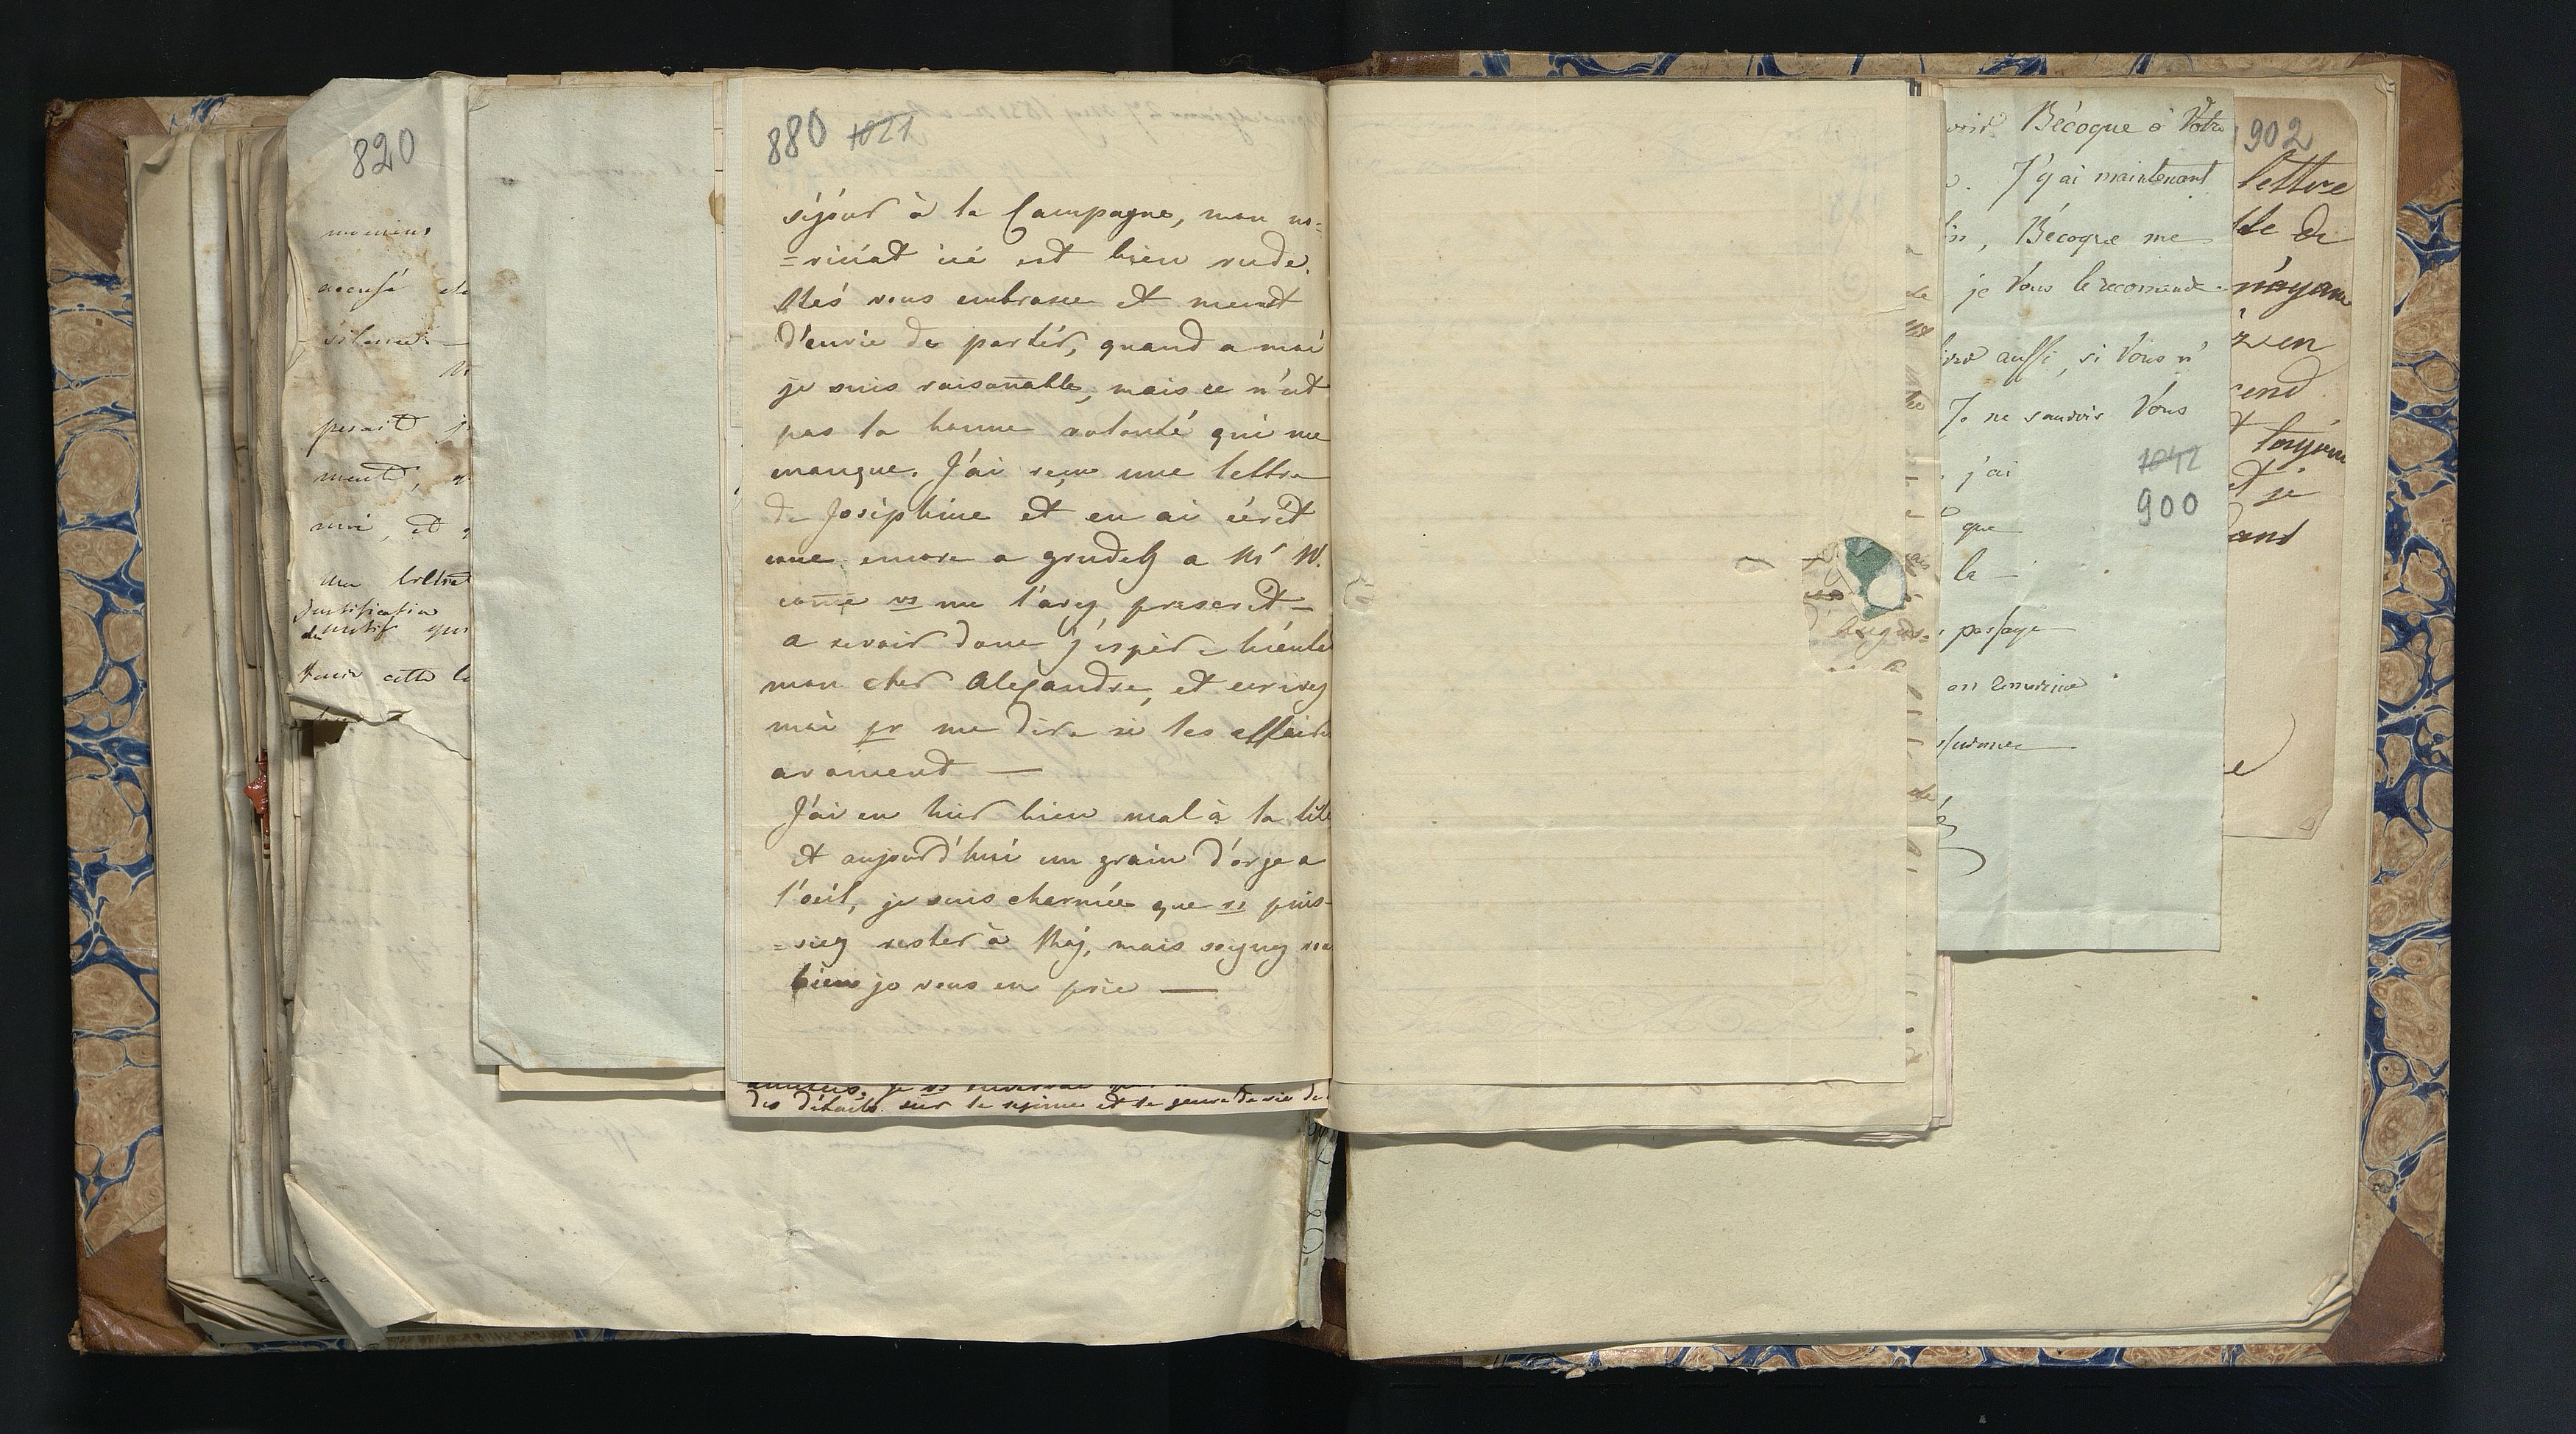 820
moment
accusé
silence
perait j
ment,
moi, et
justification
du motif que
Venir cette le
880 1021
séjour à la Campagne, mon no=
=viciat ici est bien rude.
vous embrasse et meurt
d'envie de partir, quand a moi
je suis raisonable, mais ce n'est
pas la bonne volonté qui me
manque. J'ai reçu une lettre
de Joséphine et en ai écrit
une encore a grudek a Mr W.
come vs me l'avez prescrit –
a revoir donc j'espère bientot
mon cher Alexandre, et ecrivez
moi pr me dire si les affaires
avancent —
J'ai eu hier bien mal à la tête
et aujourd'hui un grain d'orge a
l'oeil, je suis charmée que vs puis-
=siez rester à Maj, mais soignez vous
bien je vous en prie —
des détails sur le regime et le genre de vie de
Bécoque à Votre
J'y ai maintenant
Bécoque me
je Vous le recomande
aussi, si Vous n'
Je ne saurois Vous
j'ai
1042
900
que
la –
passage
902
lettre
de
n'ayant
en
rend
toujours
et je